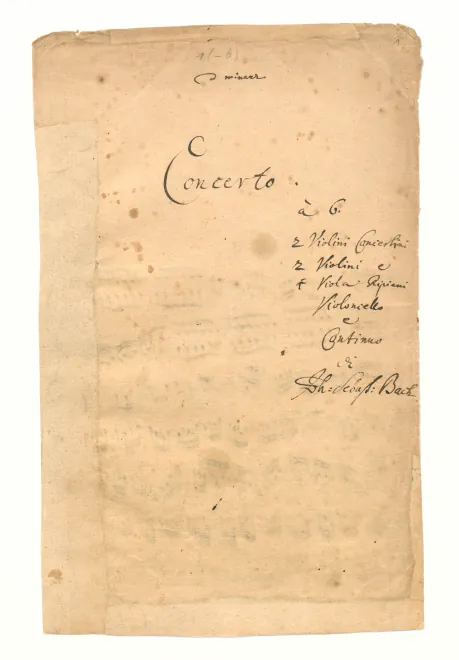 1(–6)
D minore
Concerto.
à 6.
2 Violini Concertini
2 Violini e
1 Viola Ripieni
Violoncello
e
Continuo
di
Joh: Sebast: Bach.